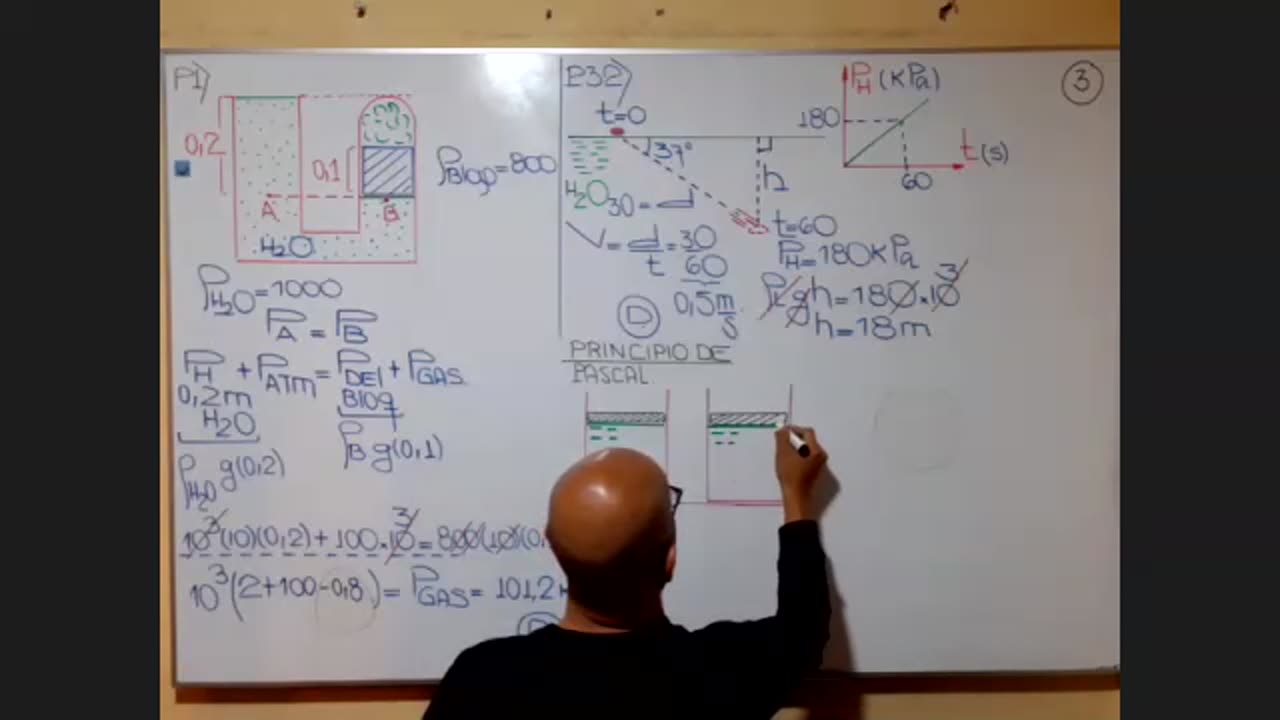 P1)
0,2
0,1
A
B
H2O
ρBloq=800
ρH2O=1000
PA = PB
PH + PATM = PDEL + PGAS
0,2m BLOQ
H2O
ρB g(0,1)
ρH2O g(0,2)
10³(10)(0,2) + 100.10³ = 800(10)(0,
10³(2+100-0,8) = PGAS = 101,2
P32)
t=0
37°
h
H2O
30 = d
t=60
V = d/t = 30/60
PH = 180KPa
0,5 m/s
D
ρL g h = 180.10³
h = 18m
PH (KPa)
180
t(s)
60
3
PRINCIPIO DE
PASCAL